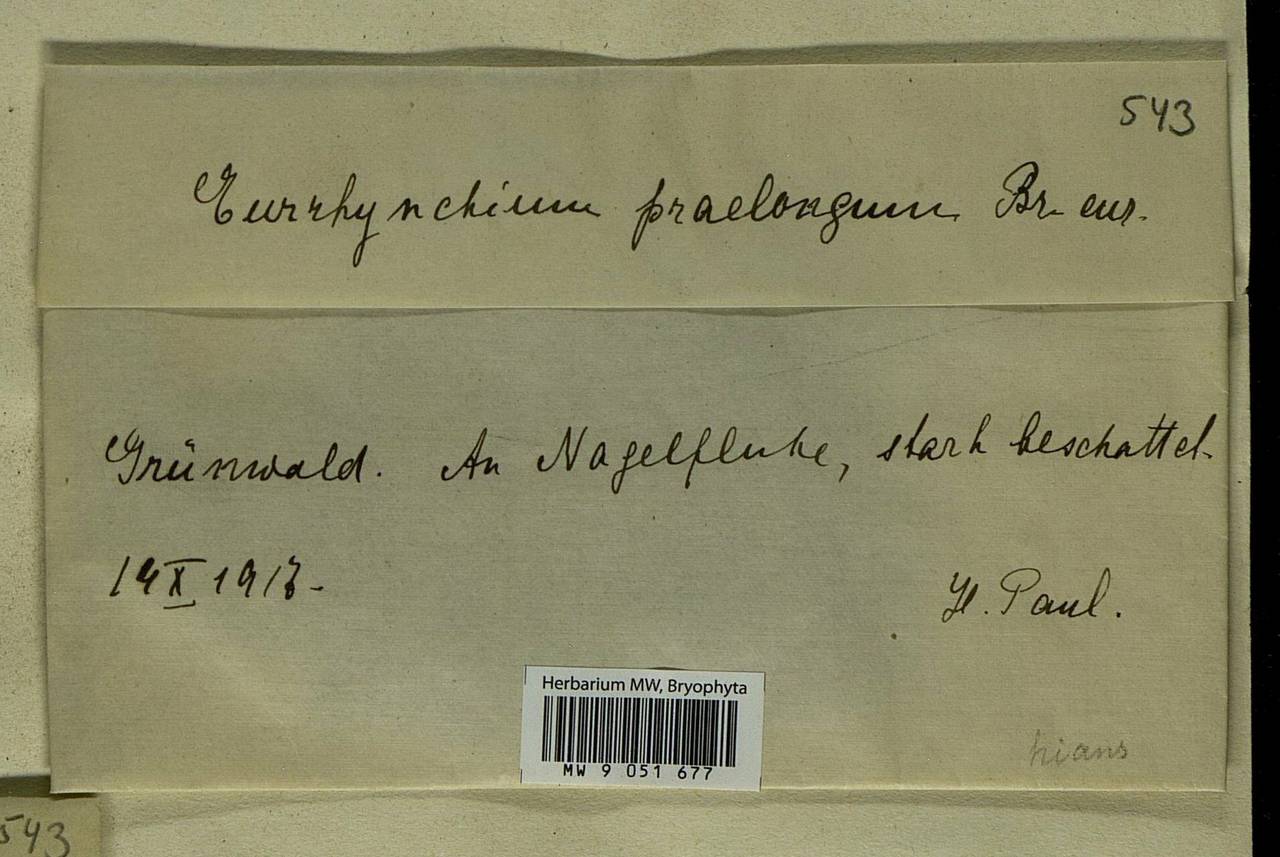 543
Eurrhynchium praelongum Br. eur.
Grünwald. An Nagelfluhe, stark beschattet.
14 X 1913.
H. Paul.
Herbarium MW, Bryophyta
MW 9 051 677
hians
543